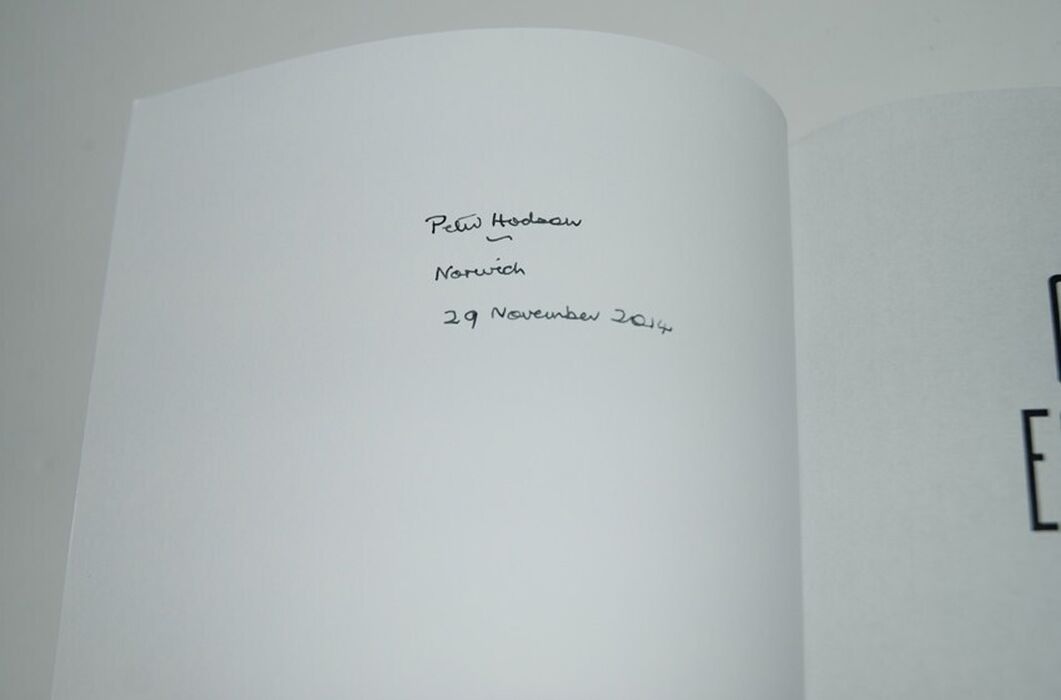 Peter Hodson
Norwich
29 November 2014
E